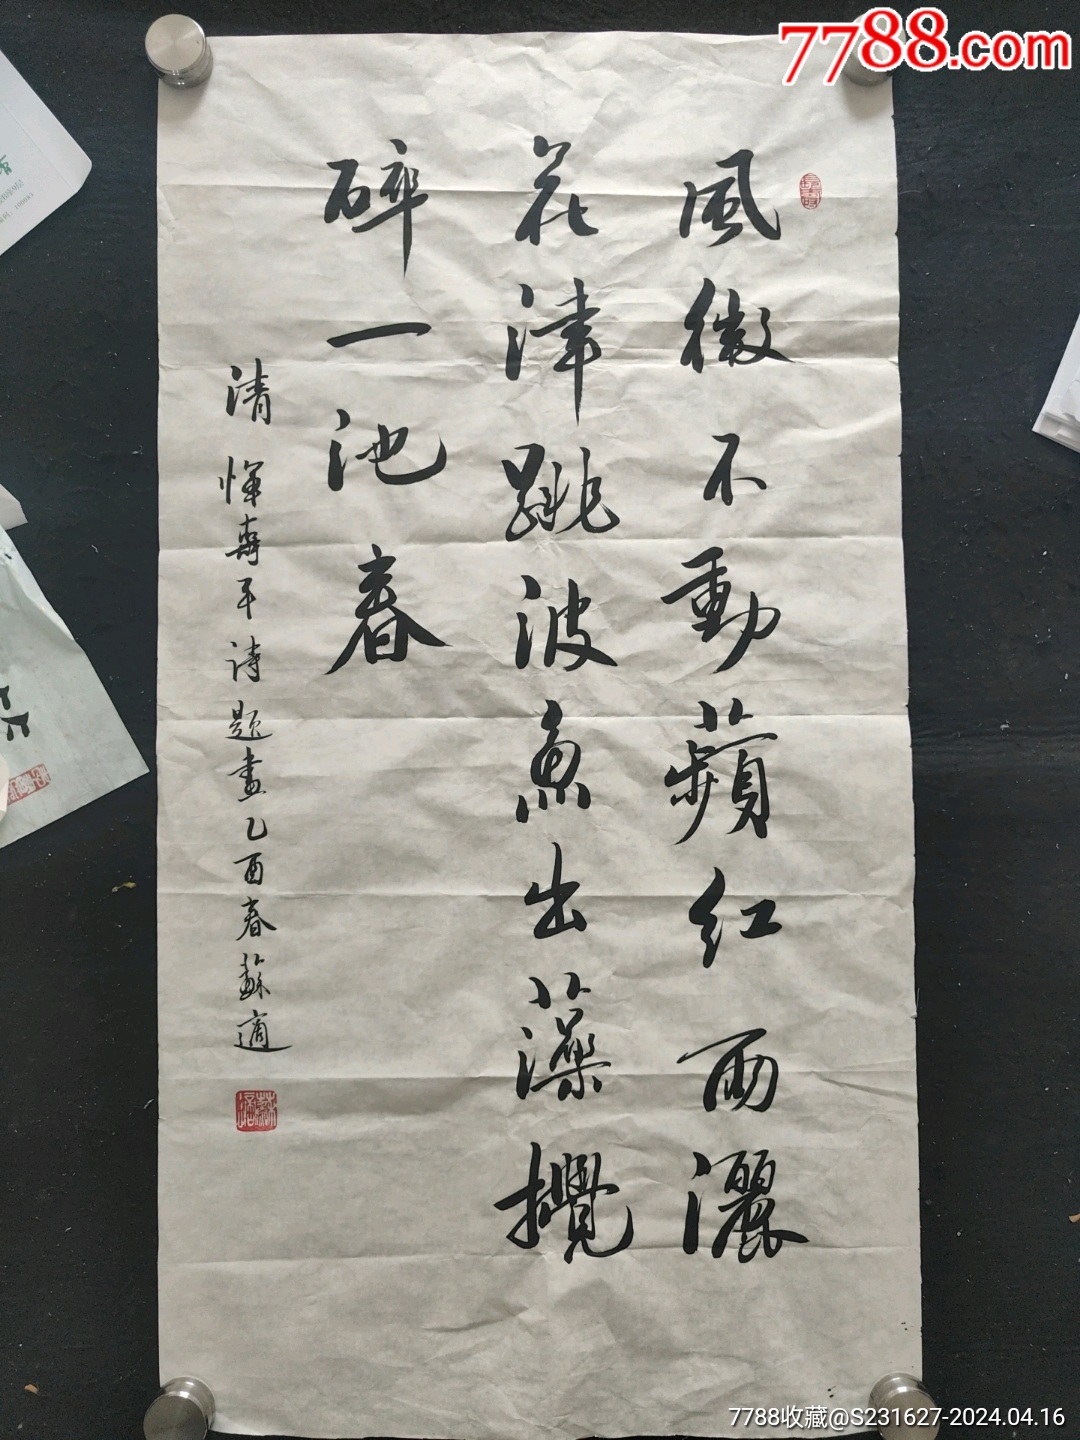 風微不動蘋紅雨灑
花津跳波魚出藻攪
碎一池春
清惲壽平詩題畫乙酉春蘇適
7788.com
7788收藏@S231627-2024.04.16